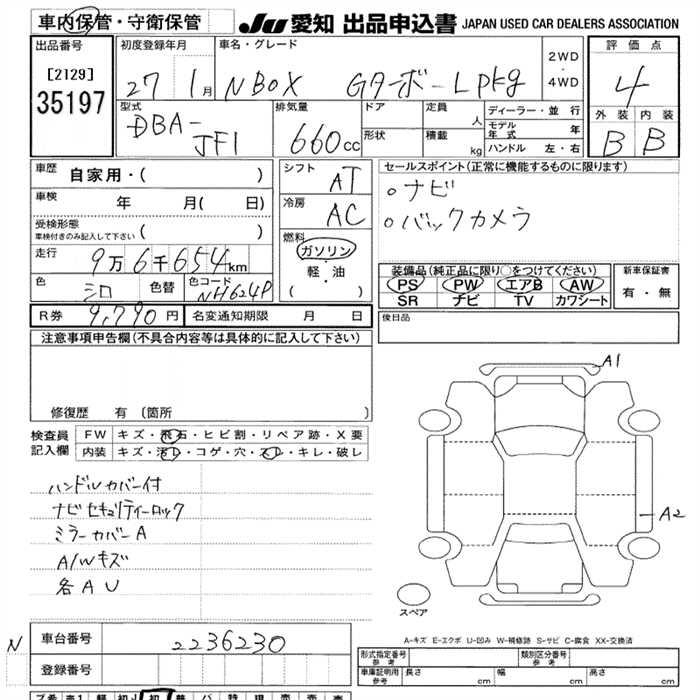 車内保管・守衛保管
JU 愛知 出品申込書 JAPAN USED CAR DEALERS ASSOCIATION
出品番号
[2129]
35197
初度登録年月
27 1月
車名・グレード
N BOX Gターボ-Lpkg
2WD
・
4WD
評価点
4
外装 内装
B B
型式
DBA-
JF1
排気量
660cc
ドア
定員
人
形状
積載
kg
ディーラー・並行
モデル年式 年
ハンドル 左・右
車歴 自家用・( )
車検 年 月( 日)
受検形態
車検付きのみ記入して下さい ( )
走行 9万6千654km
色 シロ
色替
色コード NH624P
シフト AT
冷房 AC
燃料
ガソリン
軽・油
( )
セールスポイント(正常に機能するものに限ります)
○ナビ
○バックカメラ
装備品(純正品に限り○をつけてください)
PS PW エアB AW
SR ナビ TV カワシート
新車保証書
有・無
R券 9,790円 名変通知期限 月 日
後日品
注意事項申告欄(不具合内容等は具体的に記入して下さい)
修復歴 有(箇所 )
検査員
記入欄
FW キズ・飛石・ヒビ割・リペア跡・X要
内装 キズ・汚レ・コゲ・穴・スレ・キレ・破レ
ハンドルカバー付
ナビセキュリティーロック
ミラーカバーA
A/Wキズ
各AU
A1
A2
スペア
A-キズ E-エクボ U-凹み W-補修跡 S-サビ C-腐食 XX-交換済
N
車台番号 2236230
登録番号
形式指定番号
参考
類別区分番号
参考
車庫証明用
参考
長さ cm 幅 cm 高さ cm